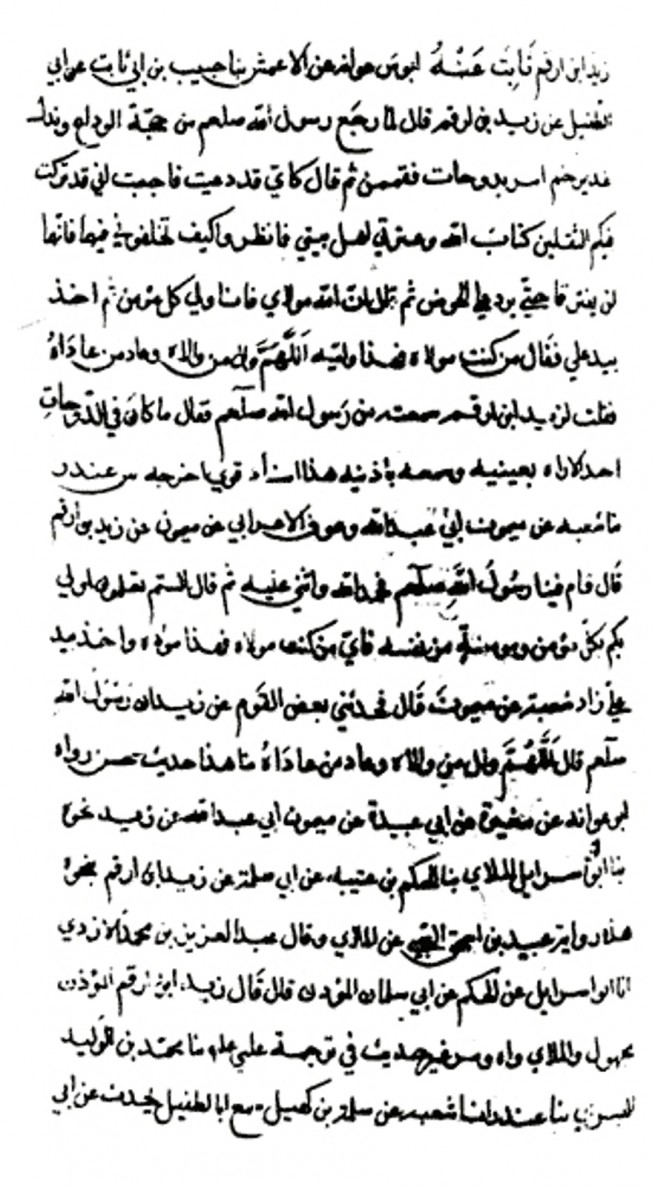 زيد ابن ارقم ثابت عنه ابو عوانه عن الاعمش ثنا حبيب بن ابي ثابت عن ابي
الطفيل عن زيد بن ارقم قال لما رجع رسول الله صلعم من حجة الوداع ونزل
غدير خم امر بدوحات فقممن ثم قال كاني قد دعيت فاجبت اني قد تركت
فيكم الثقلين كتاب الله وعترتي اهل بيتي فانظروا كيف تخلفوني فيهما فانهما
لن يفترقا حتى يردا علي الحوض ثم قال ان الله مولاي وانا ولي كل مؤمن ثم اخذ
بيد علي فقال من كنت مولاه فهذا وليه اللهم وال من والاه وعاد من عاداه
فقلت لزيد ابن ارقم سمعته من رسول الله صلعم فقال ما كان في الدوحات
احد الا راه بعينيه وسمعه باذنيه هذا اسناد قوي اخرجه س غندر
نا شعبه عن ميمون ابي عبد الله وعوف الاعرابي عن ميمون عن زيد بن ارقم
قال قام فينا رسول الله صلعم فحمد الله واثنى عليه ثم قال الستم تعلمون اني اولى
بكم بكل مؤمن ومومنة من نفسه فاني من كنت مولاه فهذا مولاه واخذ بيد
علي زاد شعبة عن ميمون قال فحدثني بعض القوم عن زيد ان رسول الله
صلعم قال اللهم وال من والاه وعاد من عاداه هذا حديث حسن رواه
ابو عوانه عن مغيرة عن ابي عبيدة عن ميمون ابي عبد الله عن زيد نحوه
ثنا ابو اسرايل الملاي ثنا الحكم بن عتيبه عن ابي سلمة عن زيد ابن ارقم نحوه
هذا رواية عبيد بن اسحق عن الملاي وقال عبد العزيز بن محمد الازدي
انا ابو اسرايل عن الحكم عن ابي سلمان المؤذن قال قال زيد ابن ارقم المؤذن
مجهول والملاي واه ومر غير حديث في ترجمة علي عليه ثنا محمد بن الوليد
البسري ثنا غندر انا شعبه عن سلمة بن كهيل سمع ابا الطفيل يحدث عن ابي